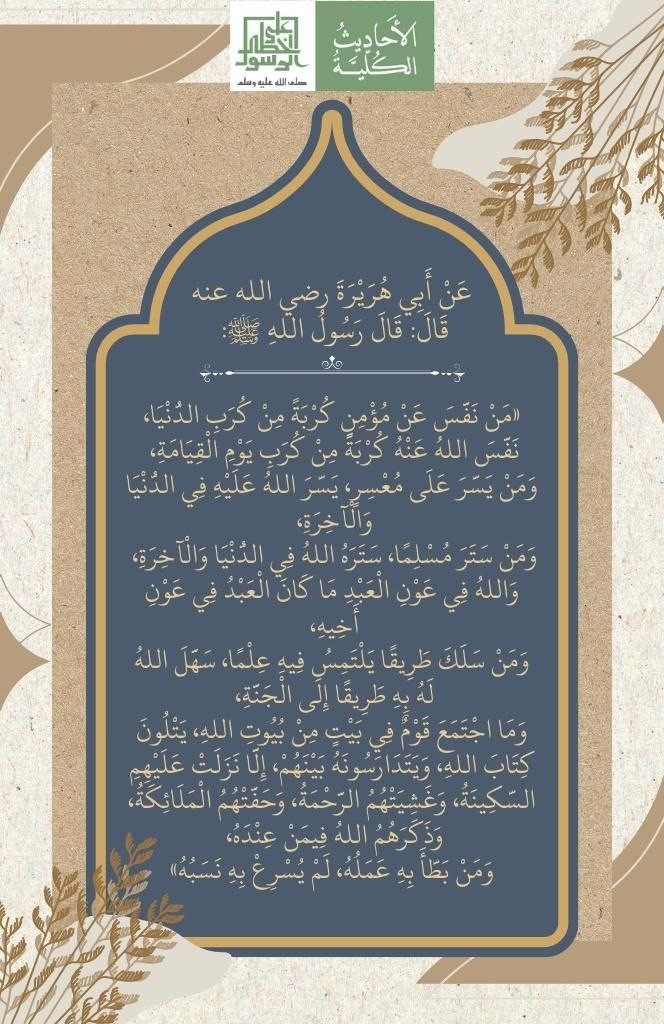 الأَحَادِيثُ
الكُلِّيَّةُ
على
خطى
الرسول
صلى الله عليه وسلم
عَنْ أَبِي هُرَيْرَةَ رضي الله عنه
قَالَ: قَالَ رَسُولُ اللهِ ﷺ:
«مَنْ نَفَّسَ عَنْ مُؤْمِنٍ كُرْبَةً مِنْ كُرَبِ الدُّنْيَا،
نَفَّسَ اللهُ عَنْهُ كُرْبَةً مِنْ كُرَبِ يَوْمِ الْقِيَامَةِ،
وَمَنْ يَسَّرَ عَلَى مُعْسِرٍ، يَسَّرَ اللهُ عَلَيْهِ فِي الدُّنْيَا
وَالْآخِرَةِ،
وَمَنْ سَتَرَ مُسْلِمًا، سَتَرَهُ اللهُ فِي الدُّنْيَا وَالْآخِرَةِ،
وَاللهُ فِي عَوْنِ الْعَبْدِ مَا كَانَ الْعَبْدُ فِي عَوْنِ
أَخِيهِ،
وَمَنْ سَلَكَ طَرِيقًا يَلْتَمِسُ فِيهِ عِلْمًا، سَهَّلَ اللهُ
لَهُ بِهِ طَرِيقًا إِلَى الْجَنَّةِ،
وَمَا اجْتَمَعَ قَوْمٌ فِي بَيْتٍ مِنْ بُيُوتِ اللهِ، يَتْلُونَ
كِتَابَ اللهِ، وَيَتَدَارَسُونَهُ بَيْنَهُمْ، إِلَّا نَزَلَتْ عَلَيْهِمِ
السَّكِينَةُ، وَغَشِيَتْهُمُ الرَّحْمَةُ، وَحَفَّتْهُمُ الْمَلَائِكَةُ،
وَذَكَرَهُمُ اللهُ فِيمَنْ عِنْدَهُ،
وَمَنْ بَطَّأَ بِهِ عَمَلُهُ، لَمْ يُسْرِعْ بِهِ نَسَبُهُ»